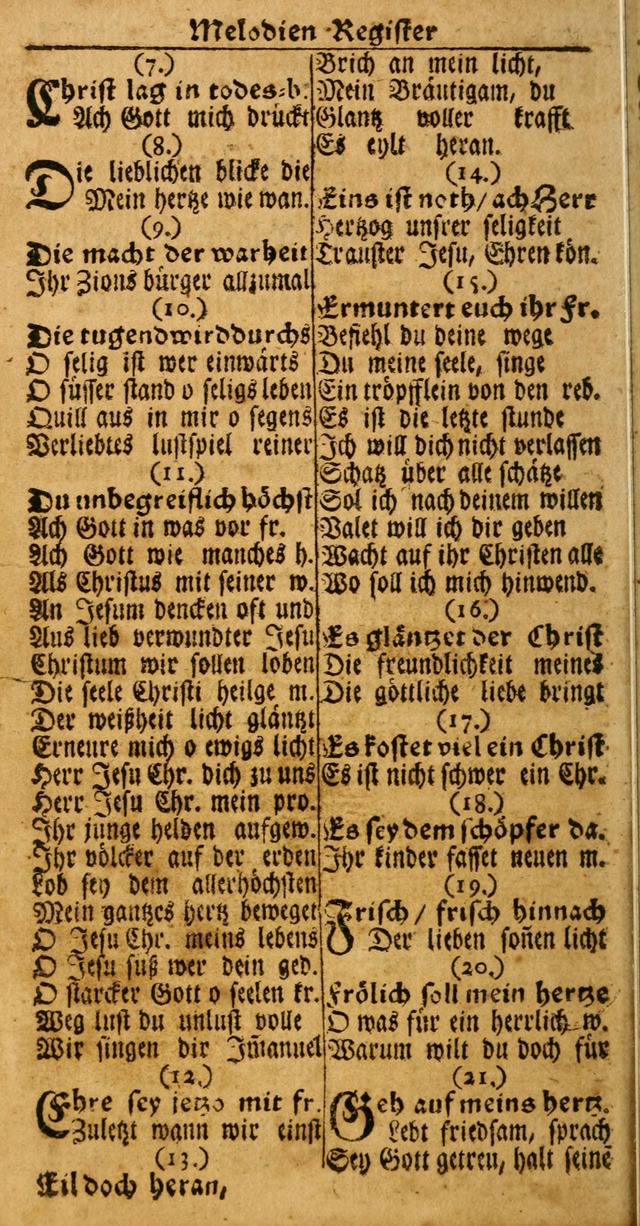 Melodien Register
(7.)
Christ lag in todes-b.
Ach Gott mich drückt
(8.)
Die lieblichen blicke die
Mein hertze wie wan.
(9.)
Die macht der warheit
Ihr Zions bürger allzumal
(10.)
Die tugend wird durchs
O selig ist wer einwärts
O süsser stand o seligs leben
Quill aus in mir o segens
Verliebtes lustspiel reiner
(11.)
Du unbegreiflich höchst
Ach Gott in was vor fr.
Ach Gott wie manches h.
Als Christus mit seiner w.
An Jesum dencken oft und
Aus lieb verwundter Jesu
Christum wir sollen loben
Die seele Christi heilge m.
Der weißheit licht gläntzt
Erneure mich o ewigs licht
Herr Jesu Chr. dich zu uns
Herr Jesu Chr. mein pro.
Ihr junge helden aufgew.
Ihr völcker auf der erden
Lob sey dem allerhöchsten
Mein gantzes hertz beweget
O Jesu Chr. meins lebens
O Jesu süß wer dein ged.
O starcker Gott o seelen kr.
Weg lust du unlust volle
Wir singen dir Im̃anuel
(12.)
Ehre sey jetzo mit fr.
Zuletzt wann wir einst
(13.)
Eil doch heran,
Brich an mein licht,
Mein Bräutigam, du
Glantz voller krafft
Es eylt heran.
(14.)
Eins ist noth / ach Herr
Hertzog unsrer seligkeit
Trauster Jesu, Ehren kön.
(15.)
Ermuntert euch ihr fr.
Befiehl du deine wege
Du meine seele, singe
Ein tröpfflein von den reb.
Es ist die letzte stunde
Ich will dich nicht verlassen
Schatz über alle schätze
Sol ich nach deinem willen
Valet will ich dir geben
Wacht auf ihr Christen alle
Wo soll ich mich hinwend.
(16.)
Es gläntzet der Christ
Die freundlichkeit meines
Die göttliche liebe bringt
(17.)
Es kostet viel ein Christ
Es ist nicht schwer ein Chr.
(18.)
Es sey dem schöpfer da.
Ihr kinder fasset neuen m.
(19.)
Frisch / frisch hinnach
Der lieben son̄en licht
(20.)
Frölich soll mein hertze
O was für ein herrlich w.
Warum wilt du doch für
(21.)
Geh auf meins hertz.
Lebt friedsam, sprach
Sey Gott getreu, halt seinē